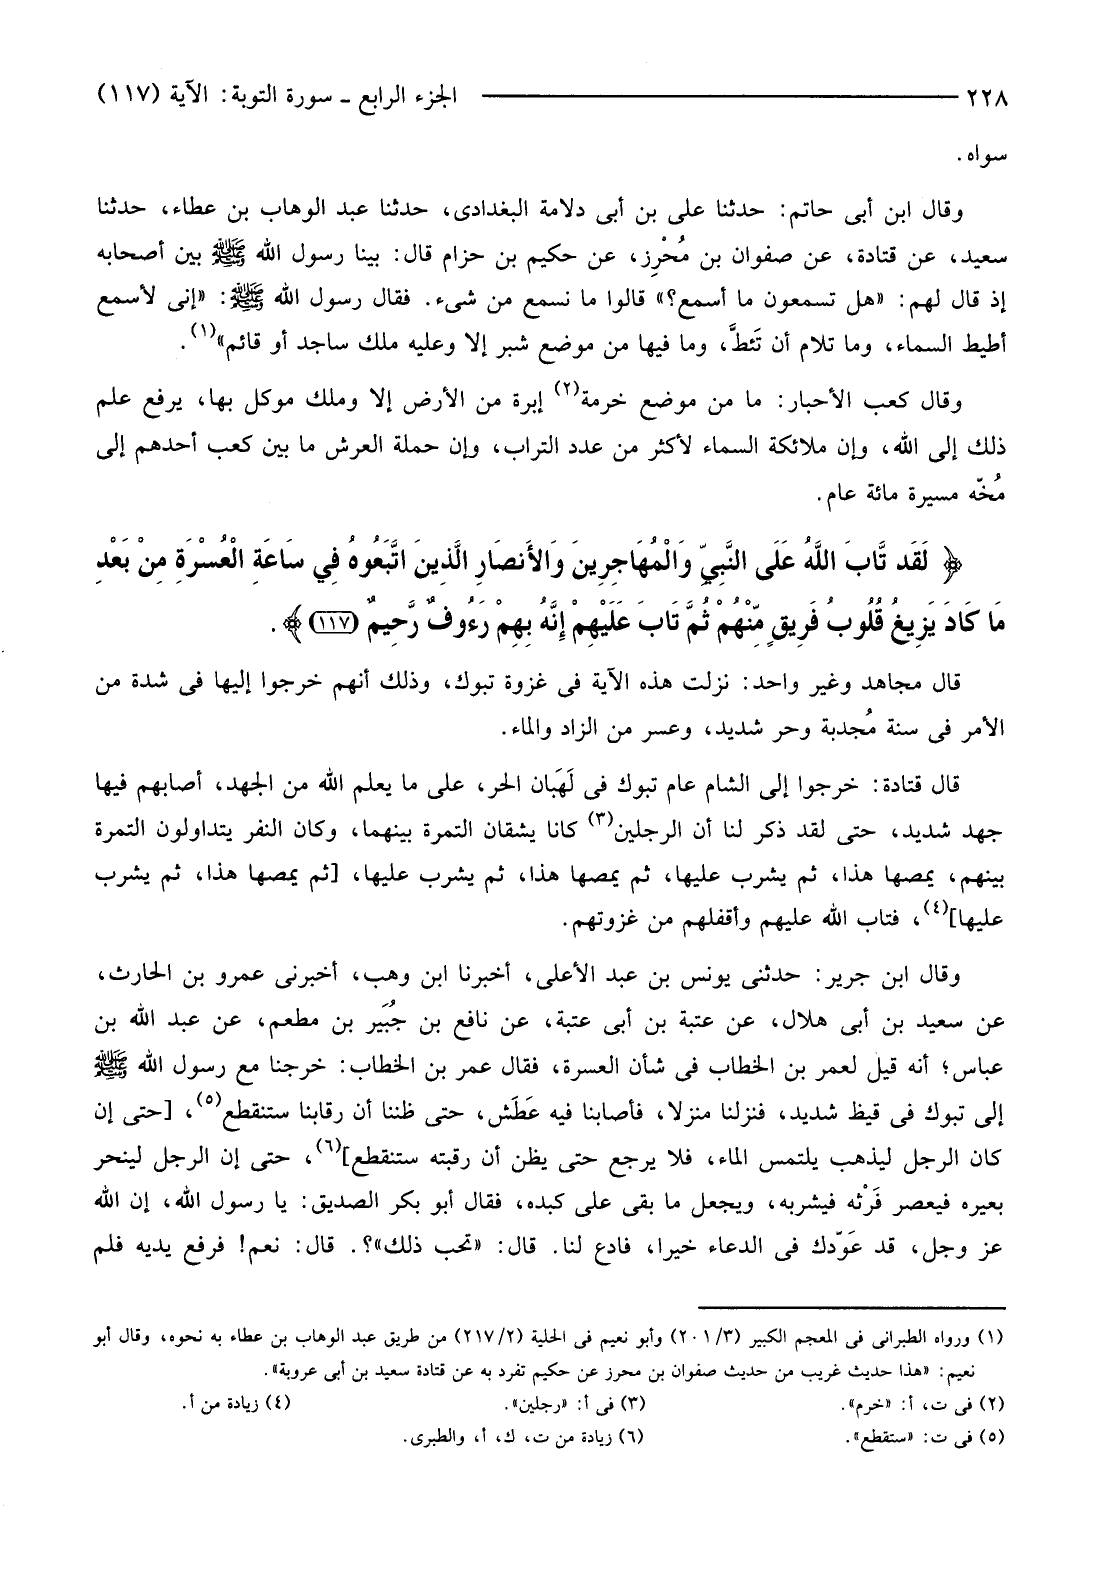 ٢٢٨ الجزء الرابع ـ سورة التوبة: الآية (١١٧)
سواه.
وقال ابن أبى حاتم: حدثنا على بن أبى دلامة البغدادى، حدثنا عبد الوهاب بن عطاء، حدثنا
سعيد، عن قتادة، عن صفوان بن مُحْرِز، عن حكيم بن حزام قال: بينا رسول الله ﷺ بين أصحابه
إذ قال لهم: «هل تسمعون ما أسمع؟» قالوا ما نسمع من شىء. فقال رسول الله ﷺ: «إنى لأسمع
أطيط السماء، وما تلام أن تَئطَّ، وما فيها من موضع شبر إلا وعليه ملك ساجد أو قائم»(١).
وقال كعب الأحبار: ما من موضع خرمة(٢) إبرة من الأرض إلا وملك موكل بها، يرفع علم
ذلك إلى الله، وإن ملائكة السماء لأكثر من عدد التراب، وإن حملة العرش ما بين كعب أحدهم إلى
مُخّه مسيرة مائة عام.
﴿ لَقَد تَّابَ اللَّهُ عَلَى النَّبِيِّ وَالْمُهَاجِرِينَ وَالأَنصَارِ الَّذِينَ اتَّبَعُوهُ فِي سَاعَةِ الْعُسْرَةِ مِنْ بَعْدِ
مَا كَادَ يَزِيغُ قُلُوبُ فَرِيقٍ مِّنْهُمْ ثُمَّ تَابَ عَلَيْهِمْ إِنَّهُ بِهِمْ رَءُوفٌ رَّحِيمٌ (١١٧) ﴾.
قال مجاهد وغير واحد: نزلت هذه الآية فى غزوة تبوك، وذلك أنهم خرجوا إليها فى شدة من
الأمر فى سنة مُجدبة وحر شديد، وعسر من الزاد والماء.
قال قتادة: خرجوا إلى الشام عام تبوك فى لَهَبان الحر، على ما يعلم الله من الجهد، أصابهم فيها
جهد شديد، حتى لقد ذكر لنا أن الرجلين(٣) كانا يشقان التمرة بينهما، وكان النفر يتداولون التمرة
بينهم، يمصها هذا، ثم يشرب عليها، ثم يمصها هذا، ثم يشرب عليها، [ثم يمصها هذا، ثم يشرب
عليها](٤)، فتاب الله عليهم وأقفلهم من غزوتهم.
وقال ابن جرير: حدثنى يونس بن عبد الأعلى، أخبرنا ابن وهب، أخبرنى عمرو بن الحارث،
عن سعيد بن أبى هلال، عن عتبة بن أبى عتبة، عن نافع بن جُبَير بن مطعم، عن عبد الله بن
عباس؛ أنه قيل لعمر بن الخطاب فى شأن العسرة، فقال عمر بن الخطاب: خرجنا مع رسول الله ﷺ
إلى تبوك فى قيظ شديد، فنزلنا منزلا، فأصابنا فيه عَطَش، حتى ظننا أن رقابنا ستنقطع(٥)، [حتى إن
كان الرجل ليذهب يلتمس الماء، فلا يرجع حتى يظن أن رقبته ستنقطع](٦)، حتى إن الرجل لينحر
بعيره فيعصر فَرْثه فيشربه، ويجعل ما بقى على كبده، فقال أبو بكر الصديق: يا رسول الله، إن الله
عز وجل، قد عَوّدك فى الدعاء خيرا، فادع لنا. قال: «تحب ذلك»؟. قال: نعم! فرفع يديه فلم
(١) ورواه الطبرانى فى المعجم الكبير (٣/ ٢٠١) وأبو نعيم فى الحلية (٢/ ٢١٧) من طريق عبد الوهاب بن عطاء به نحوه، وقال أبو
نعيم: «هذا حديث غريب من حديث صفوان بن محرز عن حكيم تفرد به عن قتادة سعيد بن أبى عروبة».
(٢) فى ت، أ: «خرم». (٣) فى أ: «رجلين». (٤) زيادة من أ.
(٥) فى ت: «ستقطع». (٦) زيادة من ت، ك، أ، والطبرى.